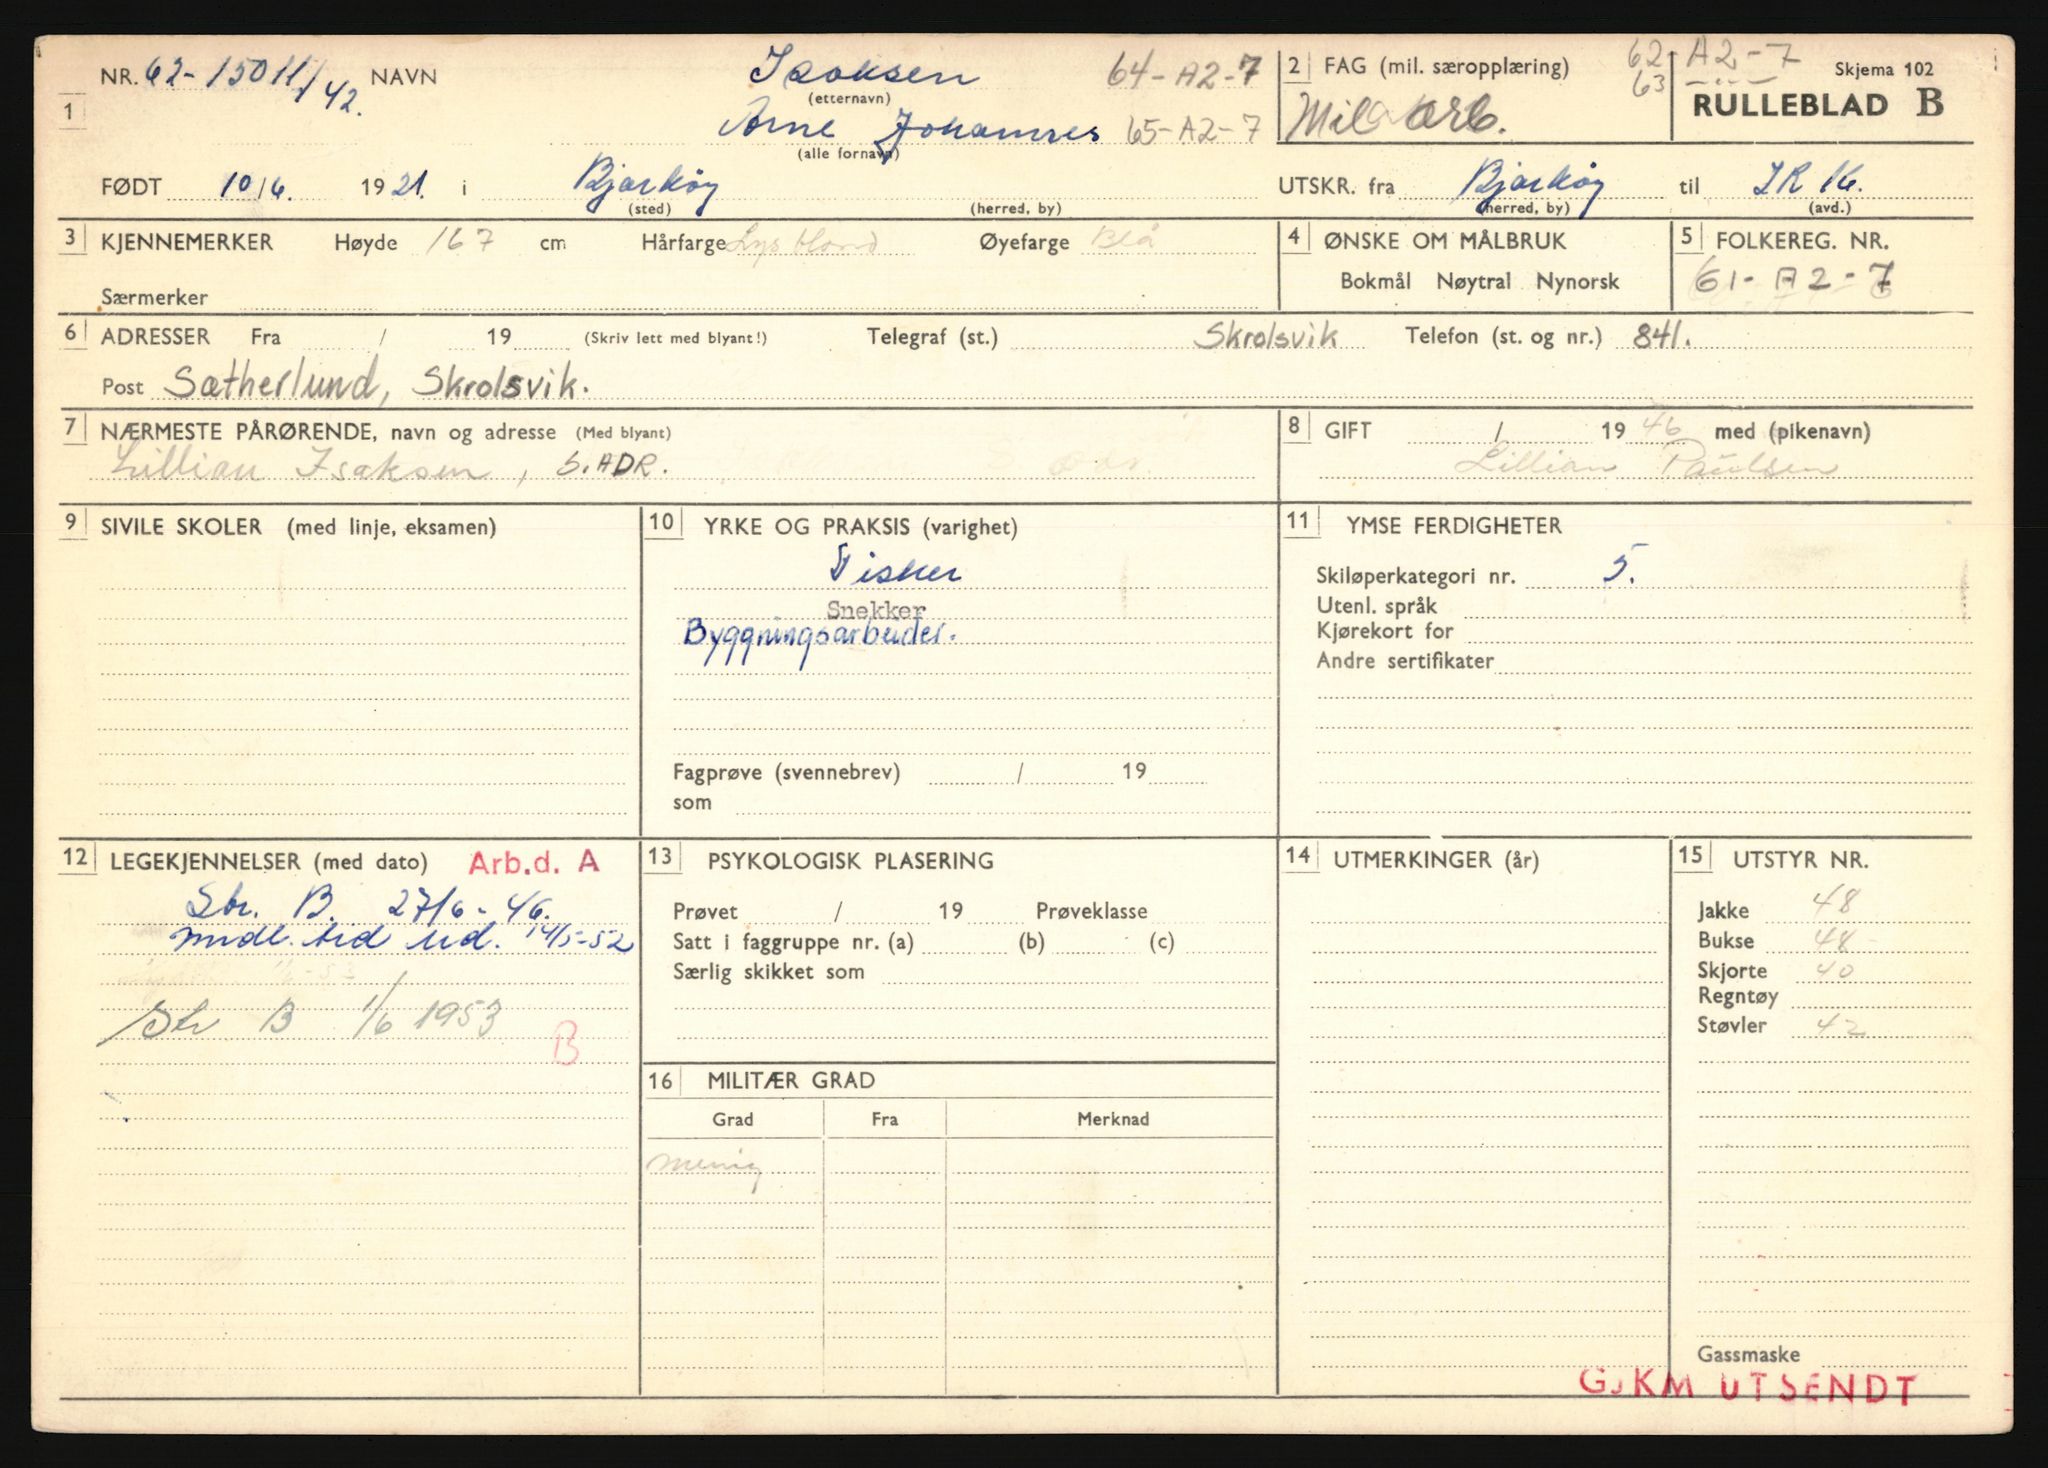 NR. 62-15011/42. NAVN Isaksen 64-A2-7
(etternavn)
1
Arne Johannes 65-A2-7
(alle fornavn)
FØDT 10/6. 1921. i Bjarkøy
(sted) (herred, by)
2 FAG (mil. særopplæring) 62-A2-7
63
Mil arb.
Skjema 102
RULLEBLAD B
UTSKR. fra Bjarkøy til IR 16.
(herred, by) (avd.)
3 KJENNEMERKER Høyde 167 cm Hårfarge Lys blond Øyefarge Blå
Særmerker
4 ØNSKE OM MÅLBRUK
Bokmål Nøytral Nynorsk
5 FOLKEREG. NR.
61-A2-7
6 ADRESSER Fra / 19 (Skriv lett med blyant!) Telegraf (st.) Skrolsvik Telefon (st. og nr.) 841.
Post Sætherlund, Skrolsvik.
7 NÆRMESTE PÅRØRENDE, navn og adresse (Med blyant)
Lillian Isaksen, s. ADR.
8 GIFT / 1946 med (pikenavn)
Lillian Paulsen
9 SIVILE SKOLER (med linje, eksamen)
10 YRKE OG PRAKSIS (varighet)
Fisker
Snekker
Byggningsarbeider.
Fagprøve (svennebrev) / 19
som
11 YMSE FERDIGHETER
Skiløperkategori nr. 5.
Utenl. språk
Kjørekort for
Andre sertifikater
12 LEGEKJENNELSER (med dato) Arb.d. A
Str. B. 27/6-46.
midl. tid ud. 14/5-52
Str B 1/6 1953
B
13 PSYKOLOGISK PLASERING
Prøvet / 19 Prøveklasse
Satt i faggruppe nr. (a) (b) (c)
Særlig skikket som
14 UTMERKINGER (år)
15 UTSTYR NR.
Jakke 48
Bukse 48
Skjorte 40
Regntøy
Støvler 42
Gassmaske
16 MILITÆR GRAD
Grad Fra Merknad
menig
GJKM UTSENDT